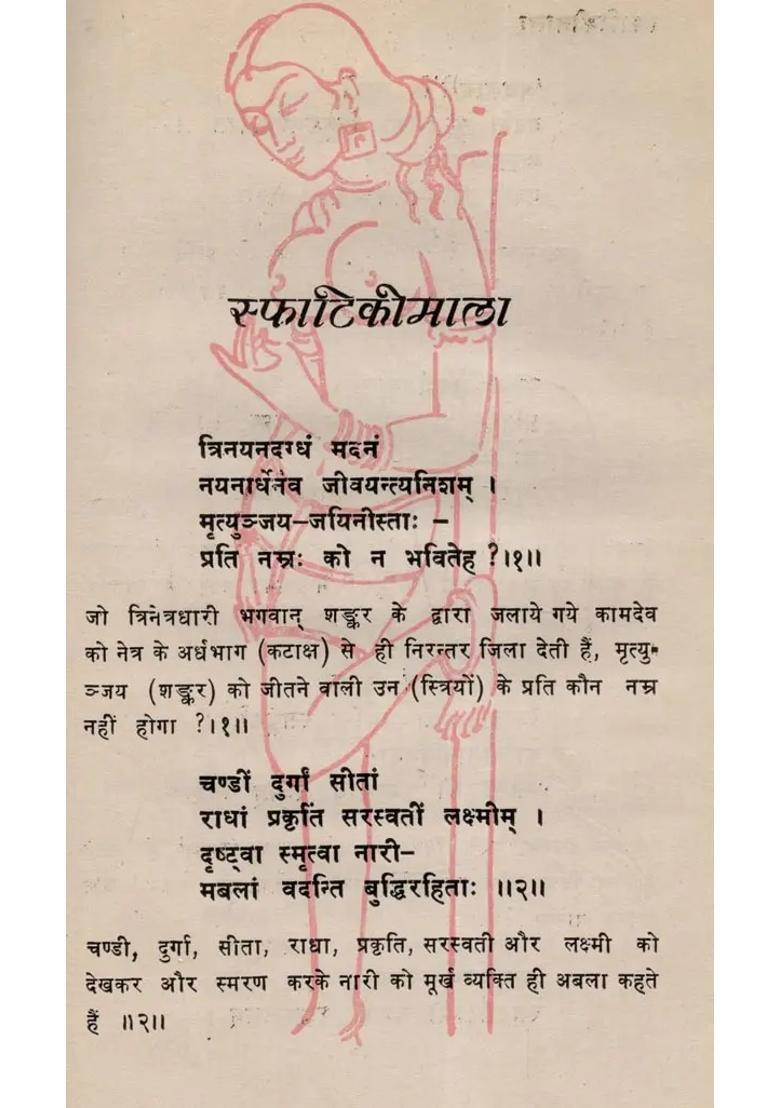 स्फाटिकीमाला
त्रिनयनदग्धं मदनं
नयनार्धेनैव जीवयन्त्यनिशम् ।
मृत्युञ्जय-जयिनीस्ताः -
प्रति नम्रः को न भवितेह ?।१॥
जो त्रिनेत्रधारी भगवान् शङ्कर के द्वारा जलाये गये कामदेव
को नेत्र के अर्धभाग (कटाक्ष) से ही निरन्तर जिला देती हैं, मृत्यु-
ञ्जय (शङ्कर) को जीतने वाली उन (स्त्रियों) के प्रति कौन नम्र
नहीं होगा ?।१॥
चण्डीं दुर्गां सीतां
राधां प्रकृतिं सरस्वतीं लक्ष्मीम् ।
दृष्ट्वा स्मृत्वा नारी-
मबलां वदन्ति बुद्धिरहिताः ॥२॥
चण्डी, दुर्गा, सीता, राधा, प्रकृति, सरस्वती और लक्ष्मी को
देखकर और स्मरण करके नारी को मूर्ख व्यक्ति ही अबला कहते
हैं ॥२॥